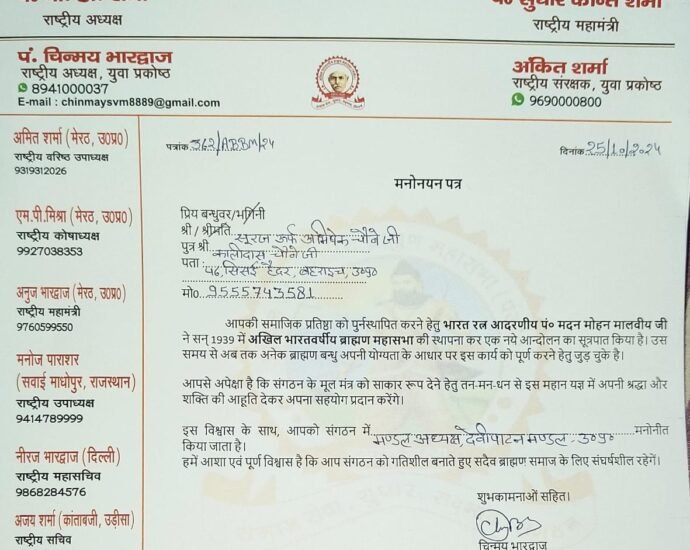 राष्ट्रीय अध्यक्ष
राष्ट्रीय महामंत्री
पं. चिन्मय भारद्वाज
राष्ट्रीय अध्यक्ष, युवा प्रकोष्ठ
8941000037
E-mail : chinmaysvm8889@gmail.com
अंकित शर्मा
राष्ट्रीय संरक्षक, युवा प्रकोष्ठ
9690000800
अमित शर्मा (मेरठ, उ०प्र०)
राष्ट्रीय वरिष्ठ उपाध्यक्ष
9319312026
एम.पी.मिश्रा (मेरठ, उ०प्र०)
राष्ट्रीय कोषाध्यक्ष
9927038353
अनुज भारद्वाज (मेरठ, उ०प्र०)
राष्ट्रीय महामंत्री
9760599550
मनोज पाराशर
(सवाई माधोपुर, राजस्थान)
राष्ट्रीय उपाध्यक्ष
9414789999
नीरज भारद्वाज (दिल्ली)
राष्ट्रीय महासचिव
9868284576
अजय शर्मा (कांताबजी, उड़ीसा)
राष्ट्रीय सचिव
पत्रांक 362/ABBM/24
दिनांक 25/10/2024
मनोनयन पत्र
प्रिय बन्धुवर/भगिनी
श्री / श्रीमति सूरज उर्फ अभिषेक चौबे जी
पुत्र श्री कालीदास चौबे जी
पता : सिसई हैदर, बहराइच, उ०प्र०
मो० 9555743581
आपकी समाजिक प्रतिष्ठा को पुर्नस्थापित करने हेतु भारत रत्न आदरणीय पं० मदन मोहन मालवीय जी
ने सन् 1939 में अखिल भारतवर्षीय ब्राह्मण महासभा की स्थापना कर एक नये आन्दोलन का सूत्रपात किया है। उस
समय से अब तक अनेक ब्राह्मण बन्धु अपनी योग्यता के आधार पर इस कार्य को पूर्ण करने हेतु जुड़ चुके है।
आपसे अपेक्षा है कि संगठन के मूल मंत्र को साकार रूप देने हेतु तन-मन-धन से इस महान यज्ञ में अपनी श्रद्धा और
शक्ति की आहूति देकर अपना सहयोग प्रदान करेंगे।
इस विश्वास के साथ, आपको संगठन में मण्डल अध्यक्ष, देवीपाटन मण्डल-उ०प्र० मनोनीत
किया जाता है।
हमें आशा एवं पूर्ण विश्वास है कि आप संगठन को गतिशील बनाते हुए सदैव ब्राह्मण समाज के लिए संघर्षशील रहेगें।
शुभकामनाओं सहित।
चिन्मय भारद्वाज